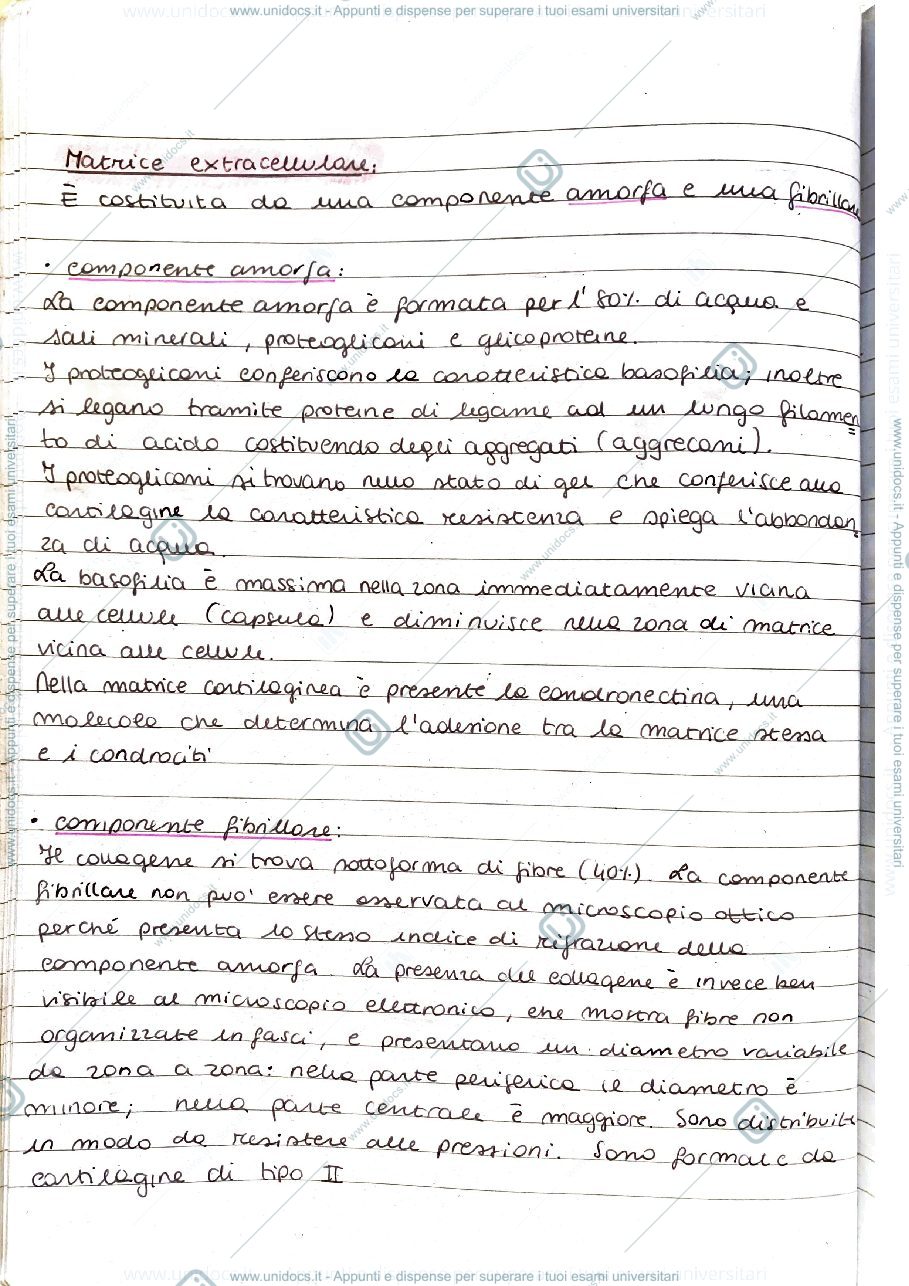 www.unidocs.it - Appunti e dispense per superare i tuoi esami universitari
Matrice extracellulare:
È costituita da una componente amorfa e una fibrillare
• componente amorfa:
La componente amorfa è formata per l'80% di acqua e
sali minerali, proteoglicani e glicoproteine.
I proteoglicani conferiscono la caratteristica basofilia; inoltre
si legano tramite proteine di legame ad un lungo filamen
to di acido costituendo degli aggregati (aggrecani).
I proteoglicani si trovano nello stato di gel che conferisce alla
cartilagine la caratteristica resistenza e spiega l'abbondan
za di acqua.
La basofilia è massima nella zona immediatamente vicina
alle cellule (capsula) e diminuisce nella zona di matrice
vicina alle cellule.
Nella matrice cartilaginea è presente la condronectina, una
molecola che determina l'adesione tra la matrice stessa
e i condrociti
• componente fibrillare:
Il collagene si trova sottoforma di fibre (40%). La componente
fibrillare non può essere osservata al microscopio ottico
perché presenta lo stesso indice di rifrazione della
componente amorfa. La presenza del collagene è invece ben
visibile al microscopio elettronico, che mostra fibre non
organizzate in fasci, e presentano un diametro variabile
da zona a zona: nella parte periferica il diametro è
minore; nella parte centrale è maggiore. Sono distribuite
in modo da resistere alle pressioni. Sono formate da
cartilagine di tipo II
www.unidocs.it - Appunti e dispense per superare i tuoi esami universitari